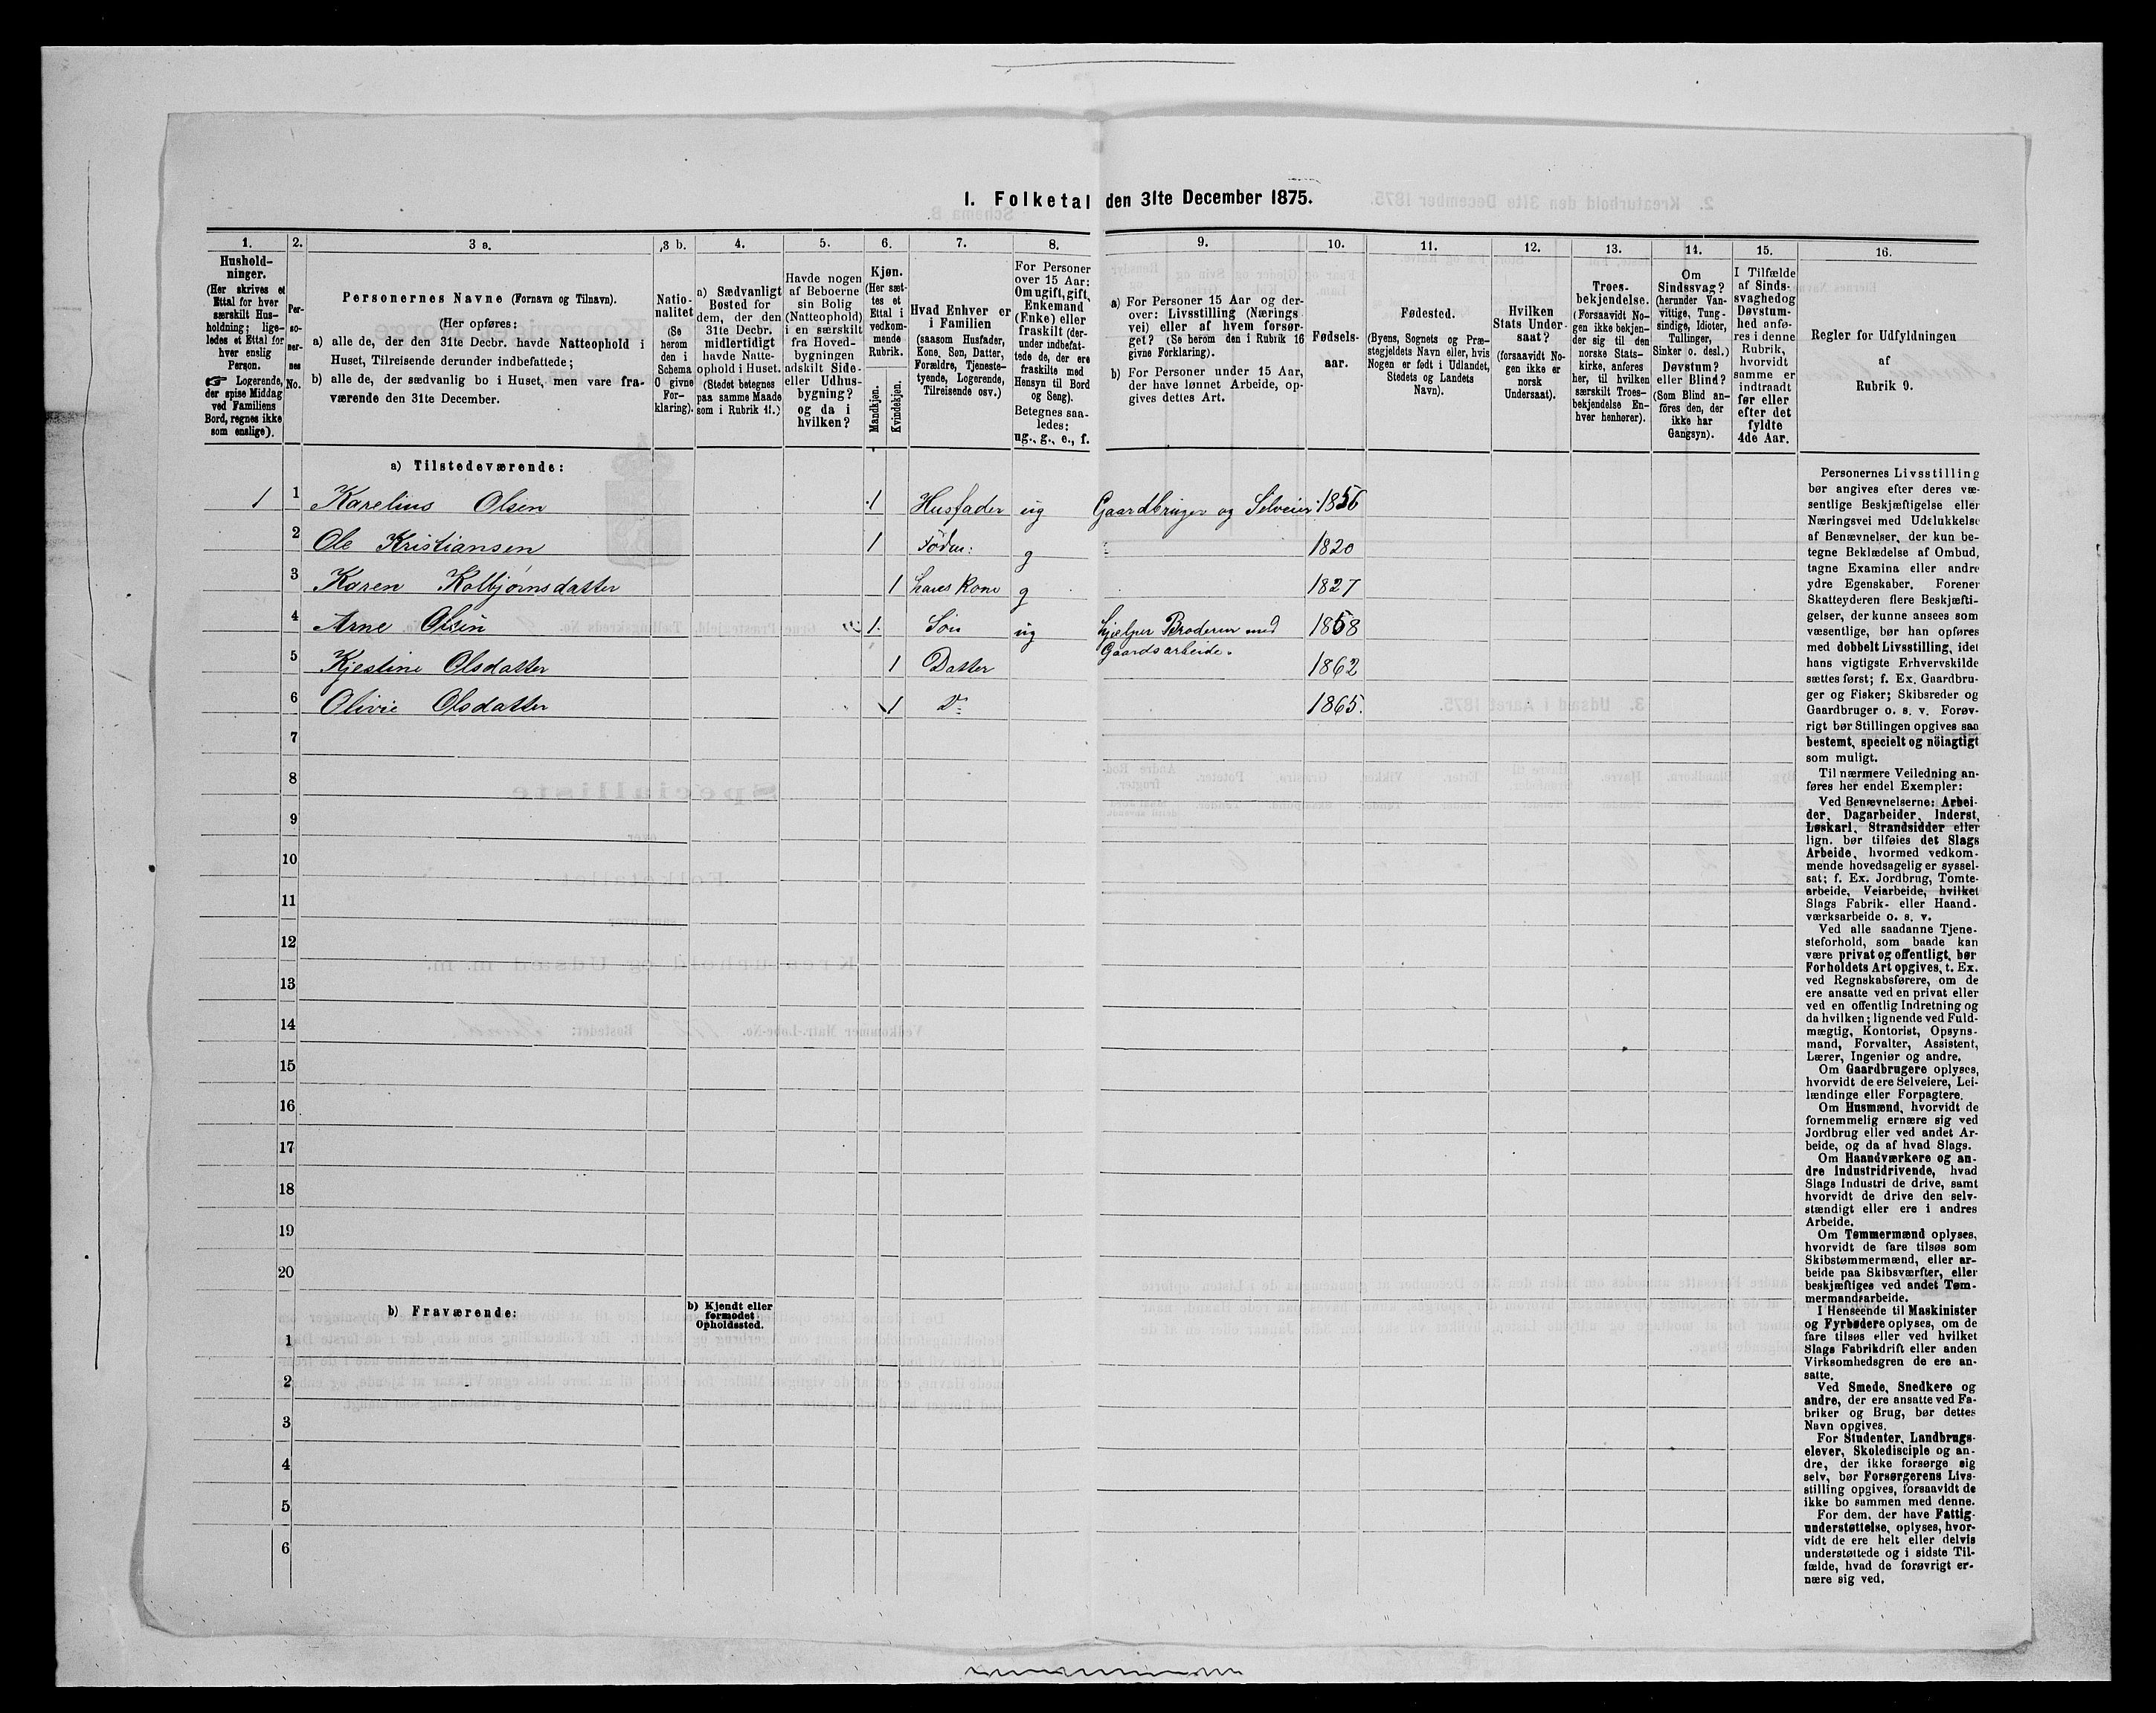 I. Folketal den 31te December 1875.
1.
Hushold-
ninger.
(Her skrives et
Ettal for hver
særskilt Hus-
holdning; lige-
ledes et Ettal for
hver enslig
Person.
☞ Logerende,
der spise Middag
ved Familiens
Bord, regnes ikke
som enslige).
2.
Per-
so-
ner-
nes
No.
3 a.
Personernes Navne (Fornavn og Tilnavn).
(Her opføres:
a) alle de, der den 31te Decbr. havde Natteophold i
Huset, Tilreisende derunder indbefattede;
b) alle de, der sædvanlig bo i Huset, men vare fra-
værende den 31te December.
3 b.
Natio-
nalitet
(Se
herom
den i
Schema
C givne
For-
klaring).
4.
a) Sædvanligt
Bosted for
dem, der den
31te Decbr.
midlertidigt
havde Natte-
ophold i Huset.
(Stedet betegnes
paa samme Maade
som i Rubrik 11.)
5.
Havde nogen
af Beboerne
sin Bolig
(Natteophold)
i en særskilt
fra Hoved-
bygningen
adskilt Side-
eller Udhus-
bygning?
og da i
hvilken?
6.
Kjøn.
(Her sæt-
tes et
Ettal i
vedkom-
mende
Rubrik.
Mandkjøn.
Kvindekjøn.
7.
Hvad Enhver er
i Familien
(saasom Husfader,
Kone, Søn, Datter,
Forældre, Tjeneste-
tyende, Logerende,
Tilreisende osv.)
8.
For Personer
over 15 Aar:
Om ugift, gift,
Enkemand
(Enke) eller
fraskilt (der-
under indbefat-
tede de, der ere
fraskilte med
Hensyn til Bord
og Seng).
Betegnes saa-
ledes:
ug., g., e., f.
9.
a) For Personer 15 Aar og der-
over: Livsstilling (Nærings
vei) eller af hvem forsør-
get? (Se herom den i Rubrik 16
givne Forklaring).
b) For Personer under 15 Aar,
der have lønnet Arbeide, op-
gives dettes Art.
10.
Fødsels-
aar.
11.
Fødested.
(Byens, Sognets og Præ-
stegjeldets Navn eller, hvis
Nogen er født i Udlandet,
Stedets og Landets
Navn).
12.
Hvilken
Stats Under-
saat?
(forsaavidt No-
gen ikke er
norsk
Undersaat).
13.
Troes-
bekjendelse.
(Forsaavidt No-
gen ikke bekjen-
der sig til den
norske Stats-
kirke, anføres
her, til hvilken
særskilt Troes-
bekjendelse En-
hver henhører).
14.
Om
Sindssvag?
(herunder Van-
vittige, Tung-
sindige, Idioter,
Tullinger,
Sinker o. desl.)
Døvstum?
eller Blind?
(Som Blind an-
føres den, der
ikke har
Gangsyn).
15.
I Tilfælde
af Sinds-
svaghed og
Døvstum-
hed anfø-
res i denne
Rubrik,
hvorvidt
samme er
indtraadt
før eller
efter det
fyldte
4de Aar.
16.
Regler for Udfyldningen
af
Rubrik 9.
a) Tilstedeværende:
1 1 Karelius Olsen 1 Husfader ug Gaardbruger og Selveier 1856
2 Ole Kristiansen 1 g 1820
3 Karen Kolbjørnsdatter 1 hans Kone g 1827
4 Arne Olsen 1 Søn ug hjælper Broderen med 1858
Gaardsarbeide.
5 Kjestine Olsdatter 1 Datter 1862
6 Olivie Olsdatter 1 Do 1865.
7
8
9
10
11
12
13
14
15
16
17
18
19
20
b) Fraværende:
b) Kjendt eller
formodet
Opholdssted.
1
2
3
4
5
6
Personernes Livsstilling
bør angives efter deres væ-
sentlige Beskjæftigelse eller
Næringsvei med Udelukkelse
af Benævnelser, der kun be-
tegne Beklædelse af Ombud,
tagne Examina eller andre
ydre Egenskaber. Forener
Skatteyderen flere Beskjæfti-
gelser, der kunne ansees som
væsentlige, bør han opføres
med dobbelt Livsstilling, idet
hans vigtigste Erhvervskilde
sættes først; f. Ex. Gaardbru-
ger og Fisker; Skibsreder og
Gaardbruger o. s. v. Forøv-
rigt bør Stillingen opgives saa
bestemt, specielt og nöiagtigt
som muligt.
Til nærmere Veiledning an-
føres her endel Exempler:
Ved Benævnelserne: Arbei-
der, Dagarbeider, Inderst,
Løskarl, Strandsidder eller
lign. bør tilføies det Slags
Arbeide, hvormed vedkom-
mende hovedsagelig er syssel-
sat; f. Ex. Jordbrug, Tomte-
arbeide, Veiarbeide, hvilket
Slags Fabrik- eller Haand-
værksarbeide o. s. v.
Ved alle saadanne Tjene-
steforhold, som baade kan
være privat og offentligt, bør
Forholdets Art opgives, t. Ex.
ved Regnskabsførere, om de
ere ansatte ved en privat eller
ved en offentlig Indretning og
da hvilken; lignende ved Fuld-
mægtig, Kontorist, Opsyns-
mand, Forvalter, Assistent,
Lærer, Ingeniør og andre.
Om Gaardbrugere oplyses,
hvorvidt de ere Selveiere, Lei-
lændinge eller Forpagtere.
Om Husmænd, hvorvidt de
fornemmelig ernære sig ved
Jordbrug eller ved andet Ar-
beide, og da af hvad Slags.
Om Haandværkere og an-
dre Industridrivende, hvad
Slags Industri de drive, samt
hvorvidt de drive den selv-
stændigt eller ere i andres
Arbeide.
Om Tømmermænd oplyses,
hvorvidt de fare tilsøs som
Skibstømmermænd, eller ar-
beide paa Skibsværfter, eller
beskjæftiges ved andet Tøm-
mermandsarbeide.
I Henseende til Maskinister
og Fyrbødere oplyses, om de
fare tilsøs eller ved hvilket
Slags Fabrikdrift eller anden
Virksomhedsgren de ere an-
satte.
Ved Smede, Snedkere og
andre, der ere ansatte ved Fa-
briker og Brug, bør dettes
Navn opgives.
For Studenter, Landbrugs-
elever, Skoledisciple og an-
dre, der ikke forsørge sig
selv, bør Forsørgerens Livs-
stilling opgives, forsaavidt de
ikke bo sammen med denne.
For dem, der have Fattig-
understøttelse, oplyses, hvor-
vidt de ere helt eller delvis
understøttede og i sidste Til-
fælde, hvad de forøvrigt er-
nære sig ved.